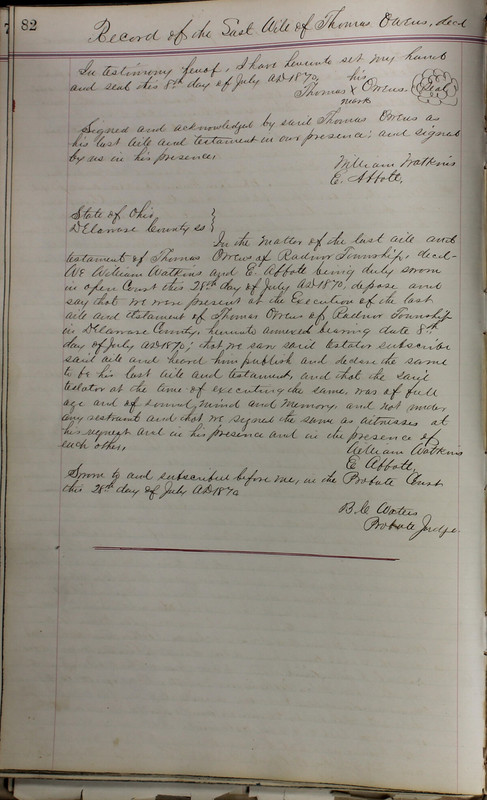 82
Record of the Last Will of Thomas Owens, decd
In testimony hereof, I have hereunto set my hand
and seal this 8th day of July AD 1870,
his
Thomas X Owens. Seal
mark
Signed and acknowledged by said Thomas Owens as
his last will and testament in our presence; and signed
by us in his presence,
William Watkins
E. Abbott,
State of Ohio
Delaware County SS
In the matter of the last will and
testament of Thomas Owens of Radnor Township, decd-
We William Watkins and E. Abbott being duly sworn
in open Court this 28th day of July AD 1870, depose and
say that we were present at the Execution of the last
will and testament of Thomas Owens of Radnor Township
in Delaware County, hereunto annexed bearing date 8th
day of July AD 1870; that we saw said testator subscribe
said will and heard him publish and declare the same
to be his last will and testament, and that the said
testator at the time of executing the same, was of full
age and of sound mind and memory, and not under
any restraint and that we signed the same as witnesses at
his request and in his presence and in the presence of
each other,
William Watkins
E Abbott
Sworn to and subscribed before me, in the Probate Court
this 28th day of July AD 1870
B. C Waters
Probate Judge.